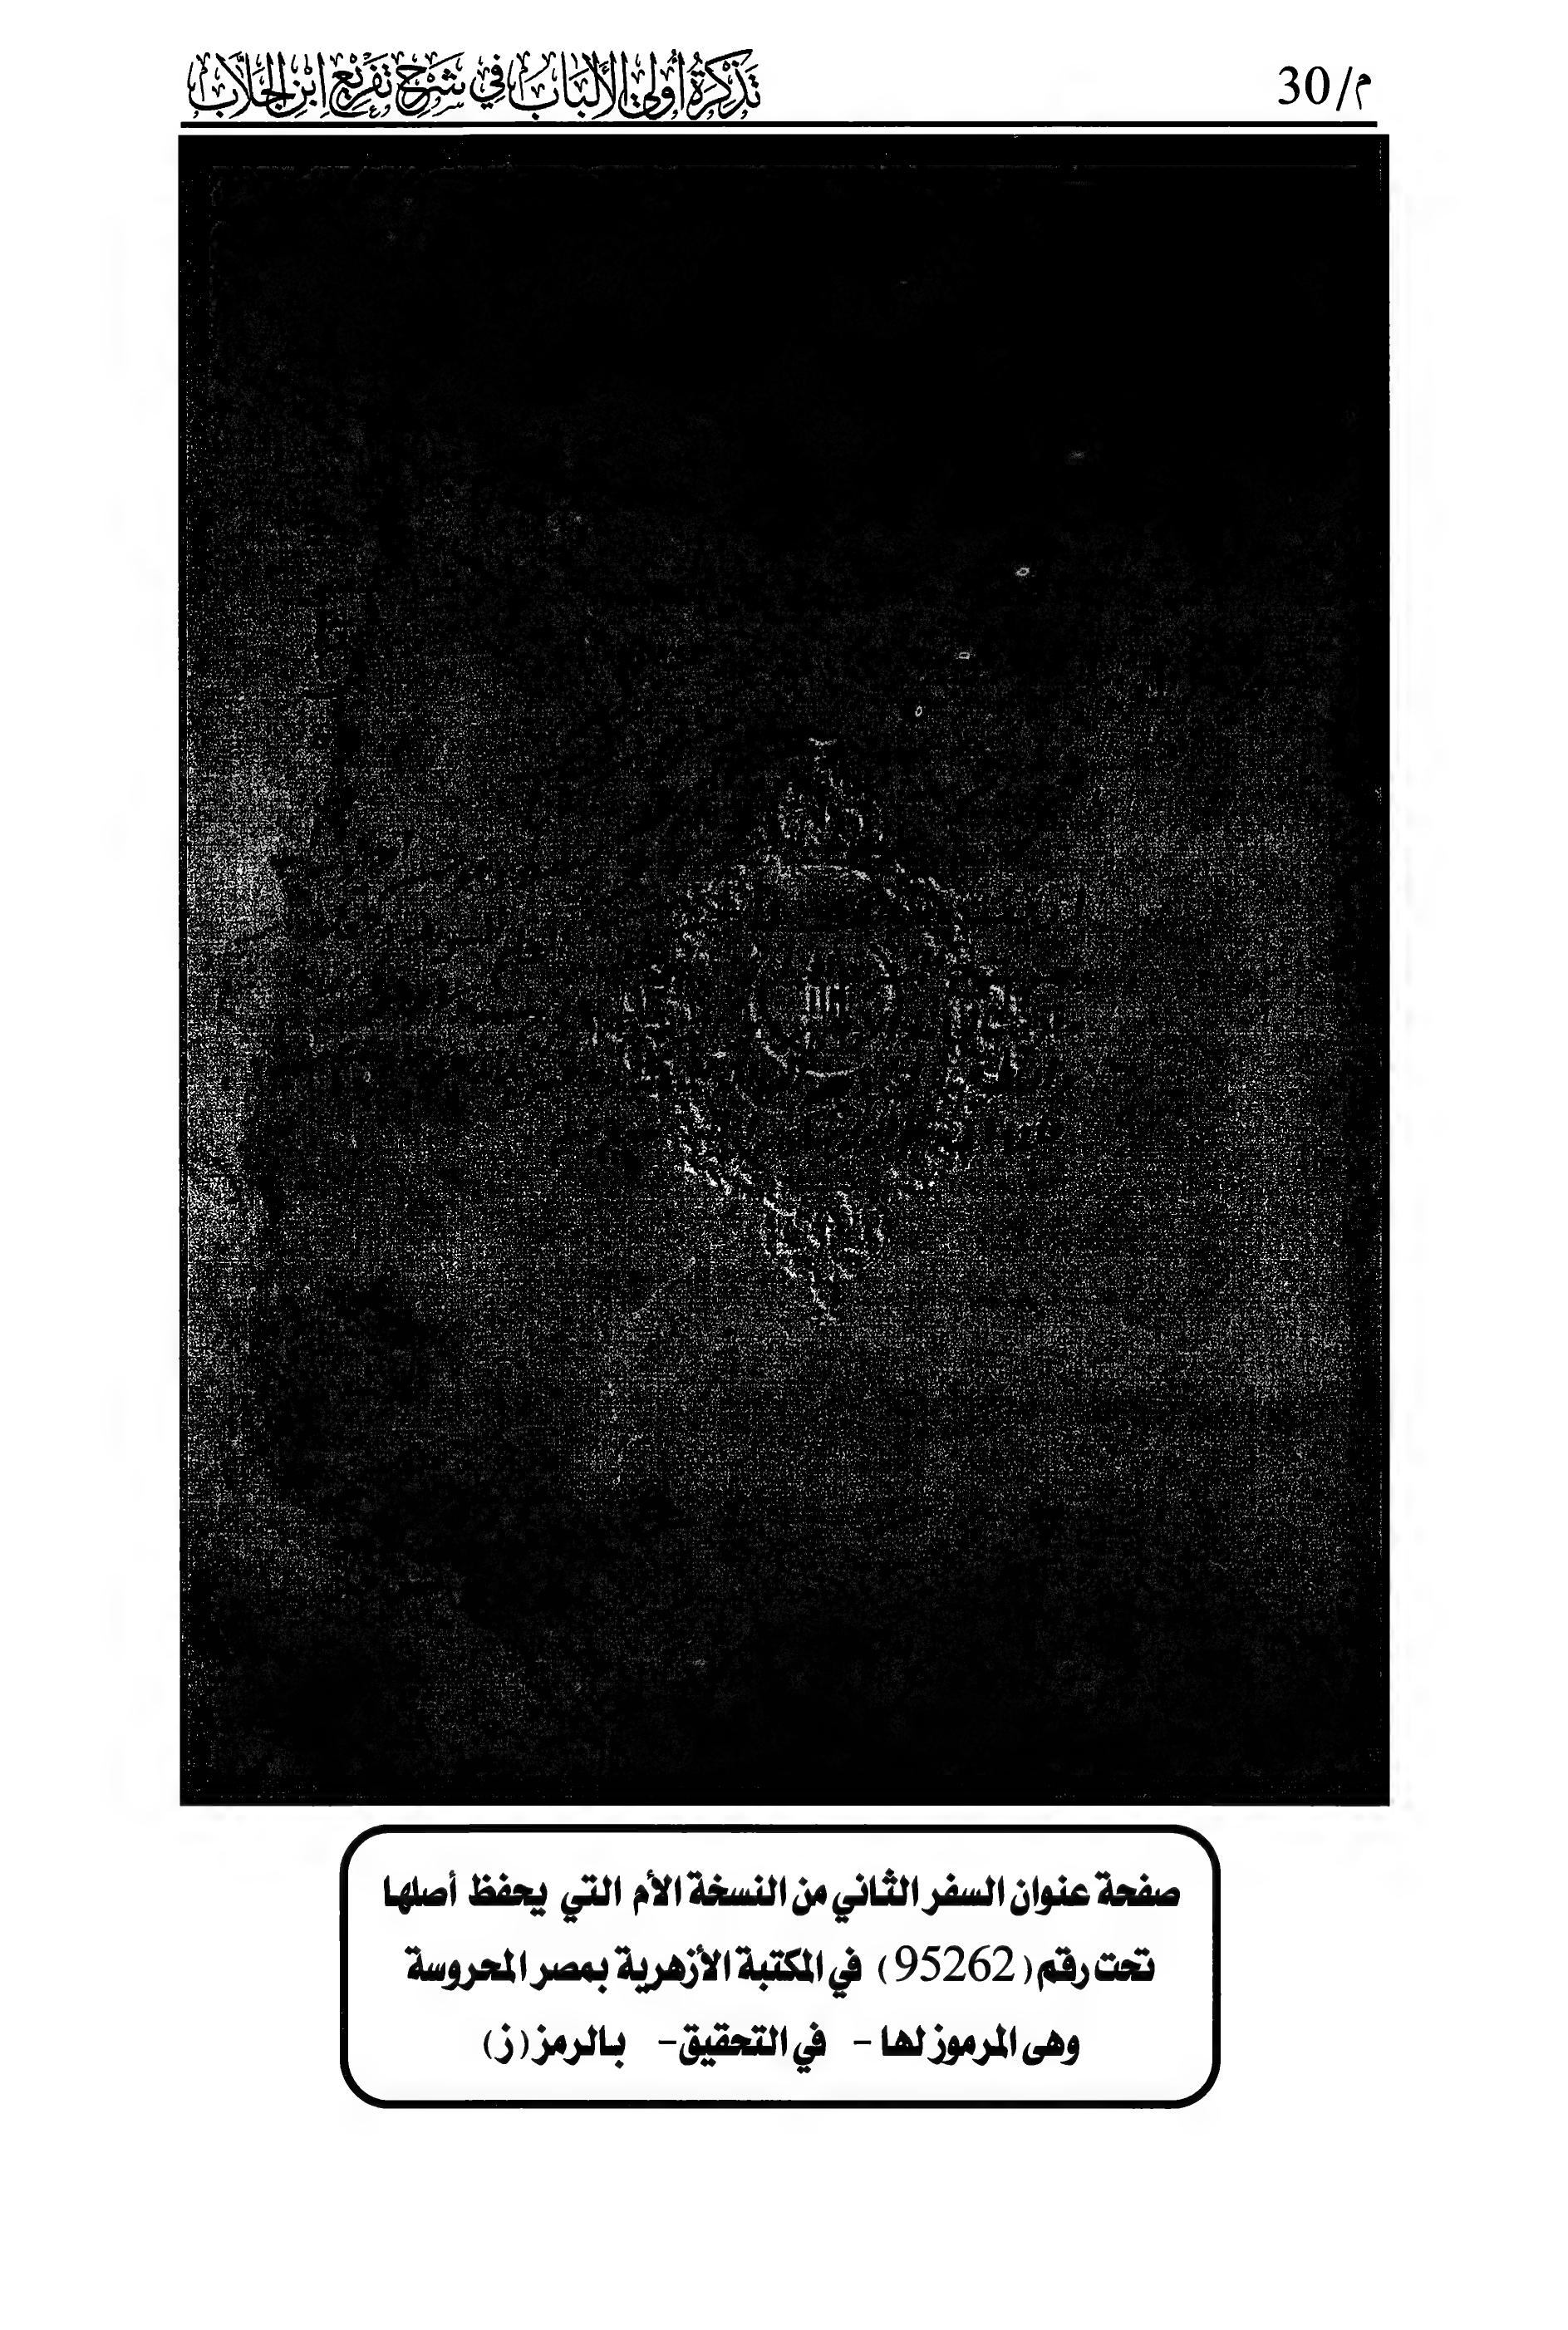 م/30
تَذْكِرَةُ أُولِي الأَلْبَابِ فِي شَرْحِ تَفْرِيْعِ ابْنِ الجَلَّابِ
صفحة عنوان السفر الثاني من النسخة الأم التي يحفظ أصلها
تحت رقم (95262) في المكتبة الأزهرية بمصر المحروسة
وهى المرموز لها - في التحقيق- بالرمز (ز)